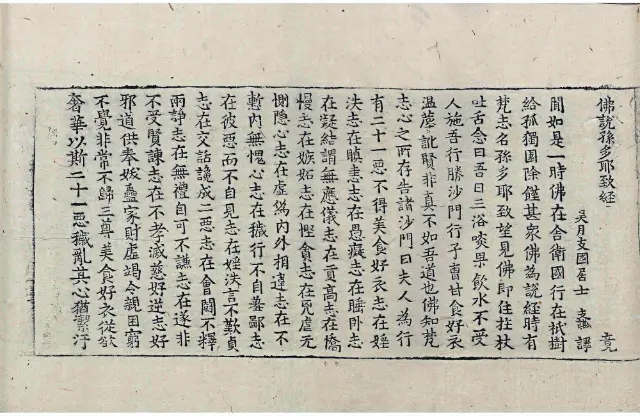 佛說孫多耶致經 竟
吳月支國居士 支謙 譯
聞如是一時佛在舍衛國行在祇樹
給孤獨園除饉甚眾佛為說經時有
梵志名孫多耶致望見佛即住拄杖
吐舌念曰吾日三浴啖果飲水不受
人施吾行勝沙門行子曹甘食好衣
溫蓐訛賢非真不如吾道也佛知梵
志心之所存告諸沙門曰夫人為行
有二十一惡不得美食好衣志在婬
泆志在瞋恚志在愚癡志在睡臥志
在疑結謂無應儀志在貢高志在憍
慢志在嫉妬志在慳貪志在兇虐无
惻隱心志在虛偽內外相違志在不
慙內無愧心志在穢行不自羞鄙志
在彼惡而不自見志在婬泆言不歎貞
志在交詁譏成二惡志在會鬪不釋
兩諍志在無禮自可不謙志在遂非
不受賢諫志在不孝滅慈好逆志好
邪道供奉妭蠱家財虛竭令親困窮
不覺非常不歸三尊美食好衣從欲
奢華以斯二十一惡穢亂其心猶潔汙